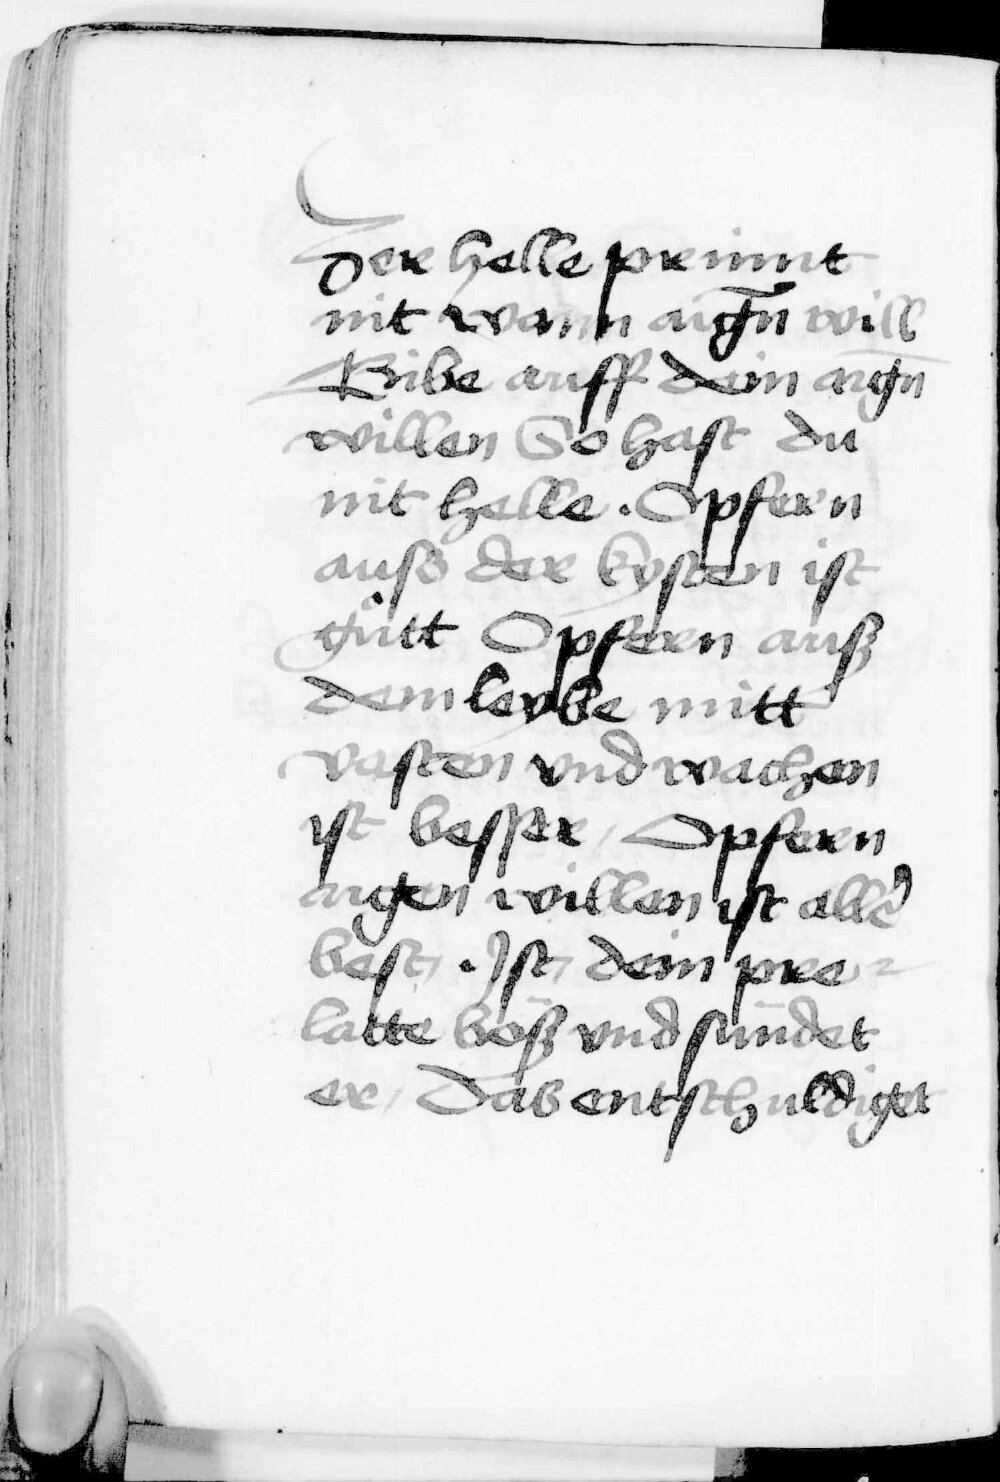 Der helle prinnt
nit wann aigṅ will
Gibe auff dein aigṅ
willen So hast du
nit helle . Opfern
auß der kysten ist
gůtt Opfern auß
dem leybe mitt
vasten vnd wachen
ist besser / Opfern
aigen willen ist alle͛
best / . Ist / dein pre-
latte böß vnd sündet
er / Das entschuldiget